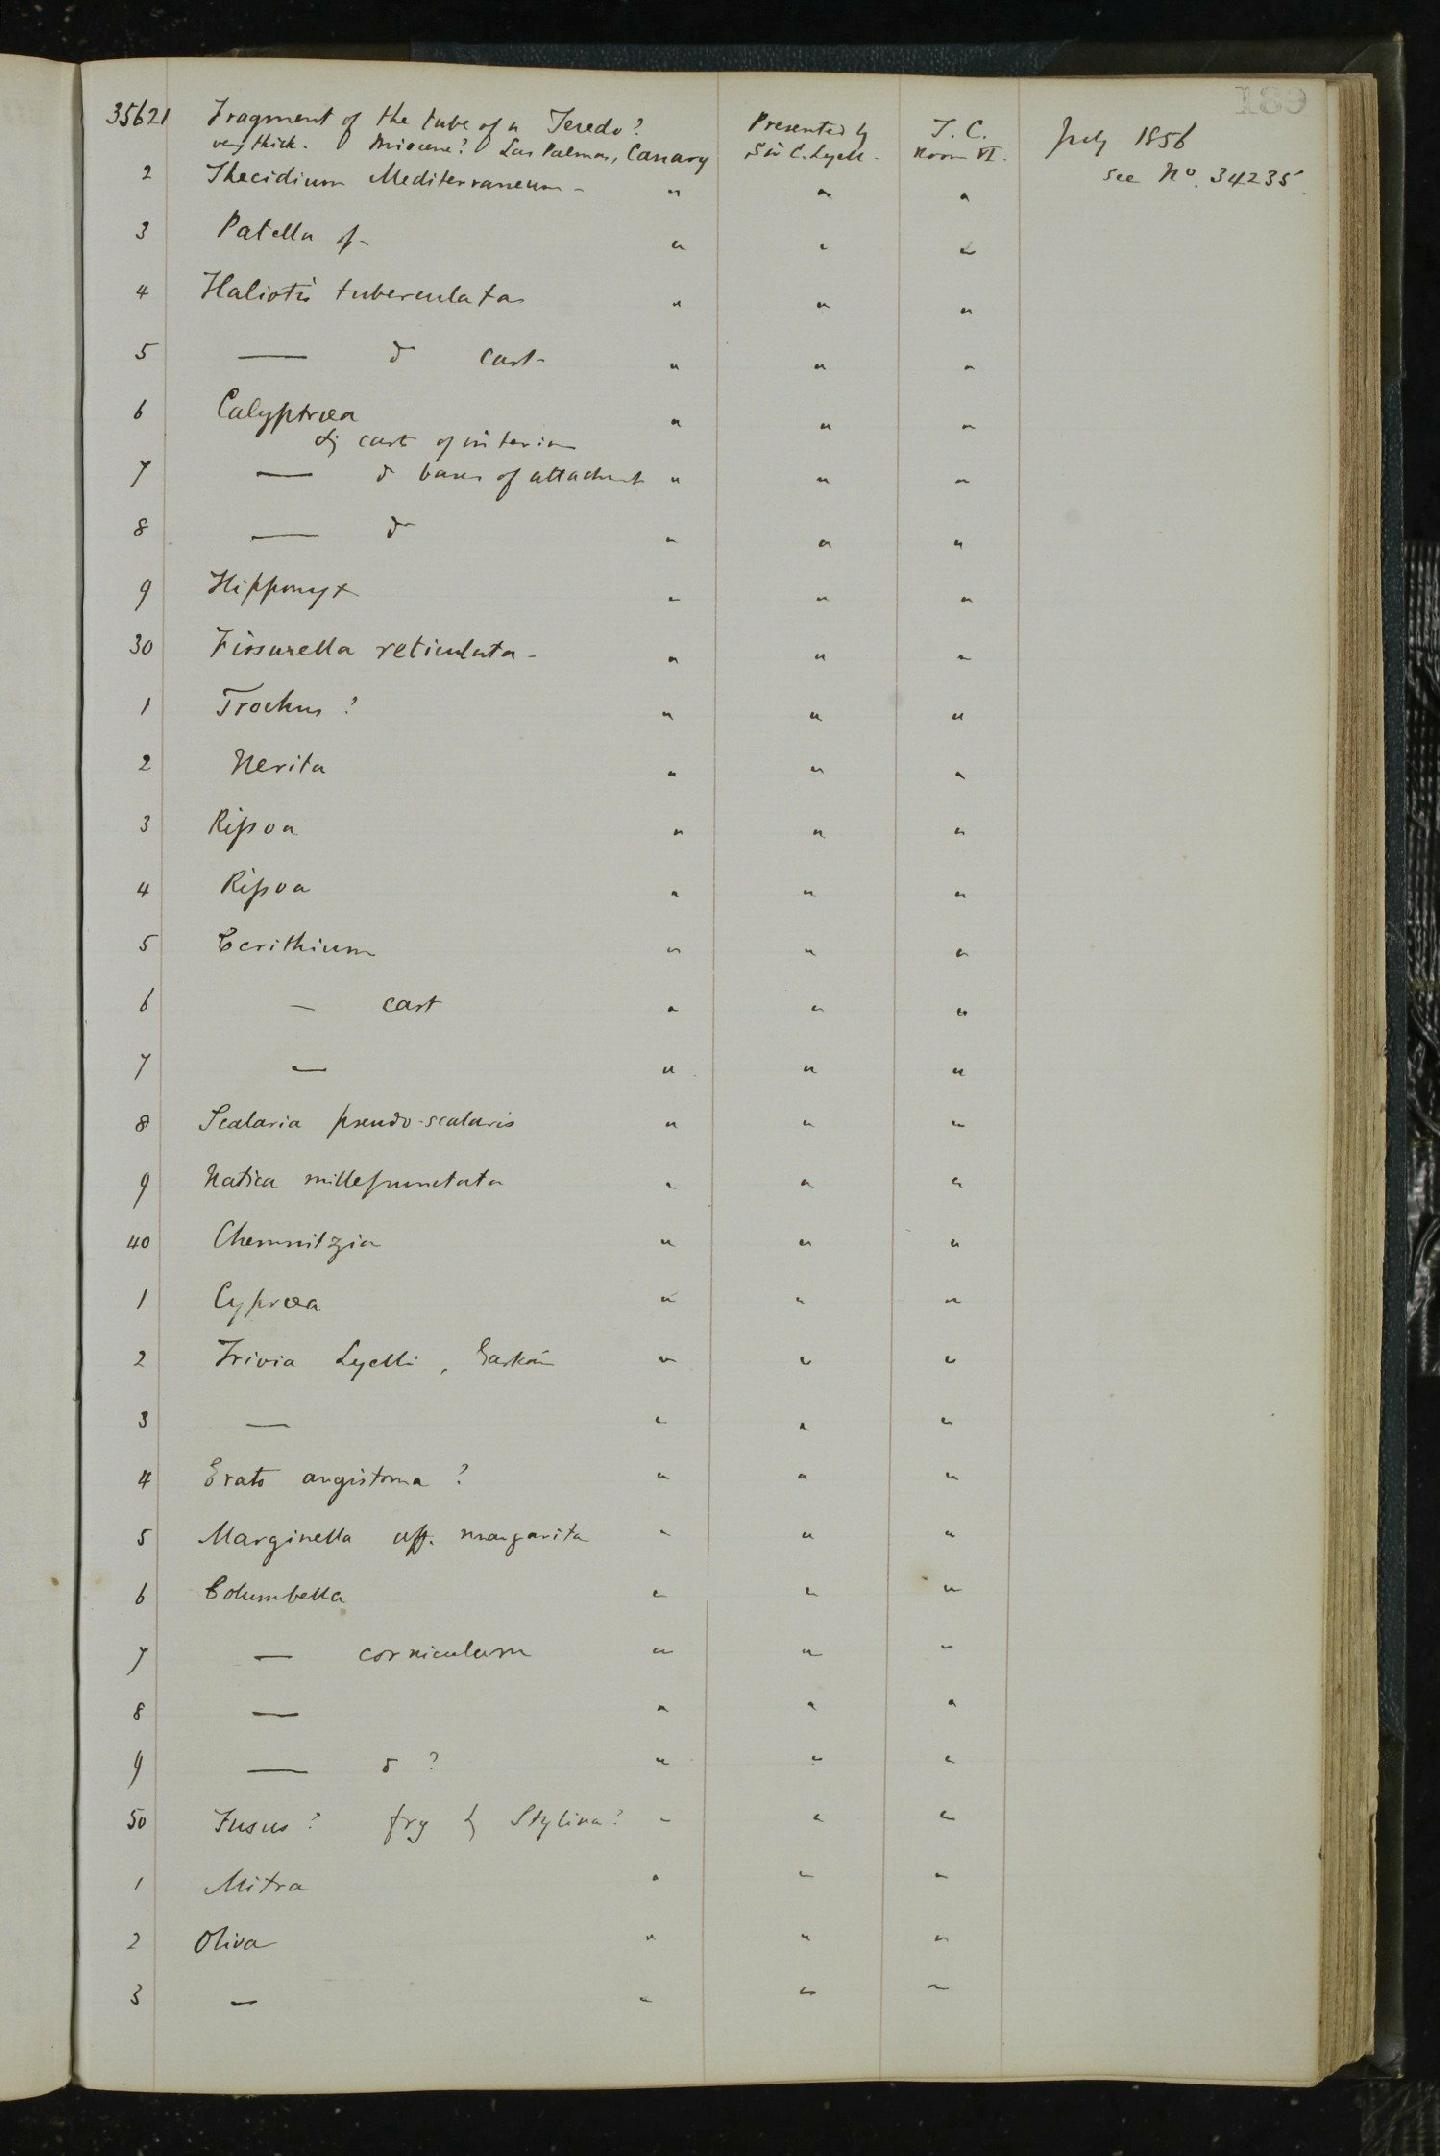 189
35621 Fragment of the tube of a Teredo? Presented by T. C. July 1856
very thick. Miocene? Las Palmas, Canary Sir C. Lyell. Room VI. see No. 34235
2 Thecidium Mediterraneum - " " "
3 Patella " " "
4 Haliotis tuberculata " " "
5 — do cast " " "
6 Calyptræa " " "
cast of interior
7 — do bases of attachment " " "
8 — do " " "
9 Hipponyx " " "
30 Fissurella reticulata - " " "
1 Trochus ? " " "
2 Nerita " " "
3 Rissoa " " "
4 Rissoa " " "
5 Cerithium " " "
6 — cast " " "
7 — " " "
8 Scalaria pseudo-scalaris " " "
9 Natica millepunctata " " "
40 Chemnitzia " " "
1 Cypræa " " "
2 Trivia Lyelli, Gaskoin " " "
3 — " " "
4 Erato angistoma ? " " "
5 Marginella aff. margarita " " "
6 Columbella " " "
7 — corniculum " " "
8 — " " "
9 — do ? " " "
50 Fusus ? fry Stylina? " " "
1 Mitra " " "
2 Oliva " " "
3 — " " "